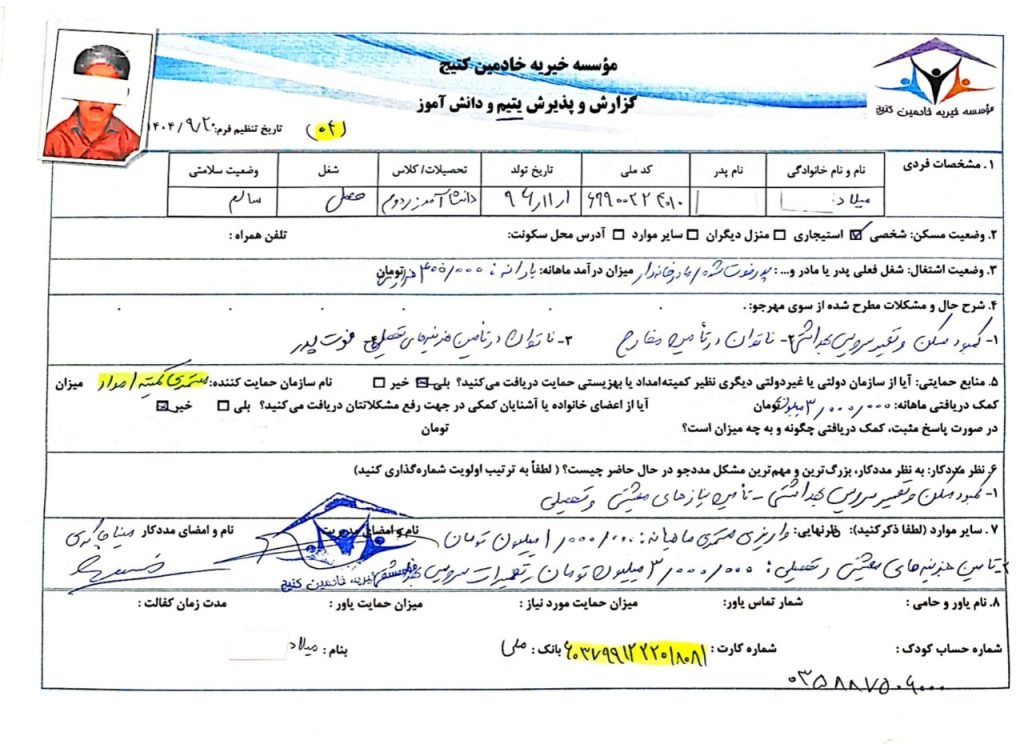 مؤسسه خیریه خادمین کتیج
گزارش و پذیرش یتیم و دانش آموز
مؤسسه خیریه خادمین کتیج
(۵۲) تاریخ تنظیم فرم: ۱۴۰۴/۹/۲۰
۱. مشخصات فردی
نام و نام خانوادگی نام پدر کد ملی تاریخ تولد تحصیلات/کلاس شغل وضعیت سلامتی
میلاد دانش آموز دوم محصل سالم
۲. وضعیت مسکن: شخصی ☑ استیجاری ☐ منزل دیگران ☐ سایر موارد ☐ آدرس محل سکونت: تلفن همراه :
۳. وضعیت اشتغال: شغل فعلی پدر یا مادر و...: پدر فوت شده/مادر خانه‌دار میزان درآمد ماهانه: یارانه : تومان
۴. شرح حال و مشکلات مطرح شده از سوی مهرجو:
۱- کمبود مسکن و تعمیر سرویس بهداشتی ۲- ناتوان در تأمین مخارج ۳- ناتوان در تأمین هزینه‌های تحصیلی - فوت پدر
۵. منابع حمایتی: آیا از سازمان دولتی یا غیردولتی دیگری نظیر کمیته‌امداد یا بهزیستی حمایت دریافت می‌کنید؟ بلی ☑ خیر ☐ نام سازمان حمایت کننده: مستمری کمیته امداد میزان
کمک دریافتی ماهانه: ۳/۰۰۰/۰۰۰ تومان آیا از اعضای خانواده یا آشنایان کمکی در جهت رفع مشکلاتتان دریافت می‌کنید؟ بلی ☐ خیر ☑
در صورت پاسخ مثبت، کمک دریافتی چگونه و به چه میزان است؟ تومان
۶. نظر مددکار: به نظر مددکار، بزرگ‌ترین و مهم‌ترین مشکل مددجو در حال حاضر چیست؟ ( لطفاً به ترتیب اولویت شماره‌گذاری کنید)
۱- کمبود مسکن و تعمیر سرویس بهداشتی - تأمین نیازهای معیشتی و تحصیلی
۷. سایر موارد (لطفا ذکر کنید): نظر نهایی: واریزی مستمری ماهیانه: ۱/۰۰۰/۰۰۰ میلیون تومان نام و امضای مدیریت نام و امضای مددکار
۲- تامین هزینه‌های معیشتی و تحصیلی: ۳/۰۰۰/۰۰۰ میلیون تومان تعمیرات سرویس بهداشتی
خیریه خادمین کتیج
۸. نام یاور و حامی : شمار تماس یاور: میزان حمایت مورد نیاز : میزان حمایت یاور : مدت زمان کفالت :
شماره حساب کودک : شماره کارت : بانک : ملی بنام : میلاد